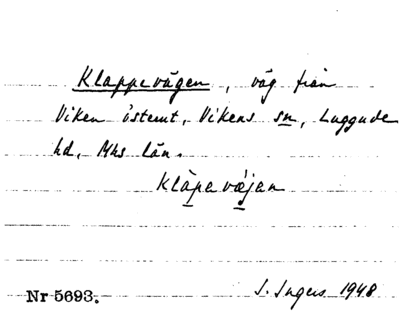 Klappevägen, väg från
Viken österut, Vikens sn, Luggude
hd, Mhs län.
Klàpevæjan
Nr 5693. I. Ingers 1948